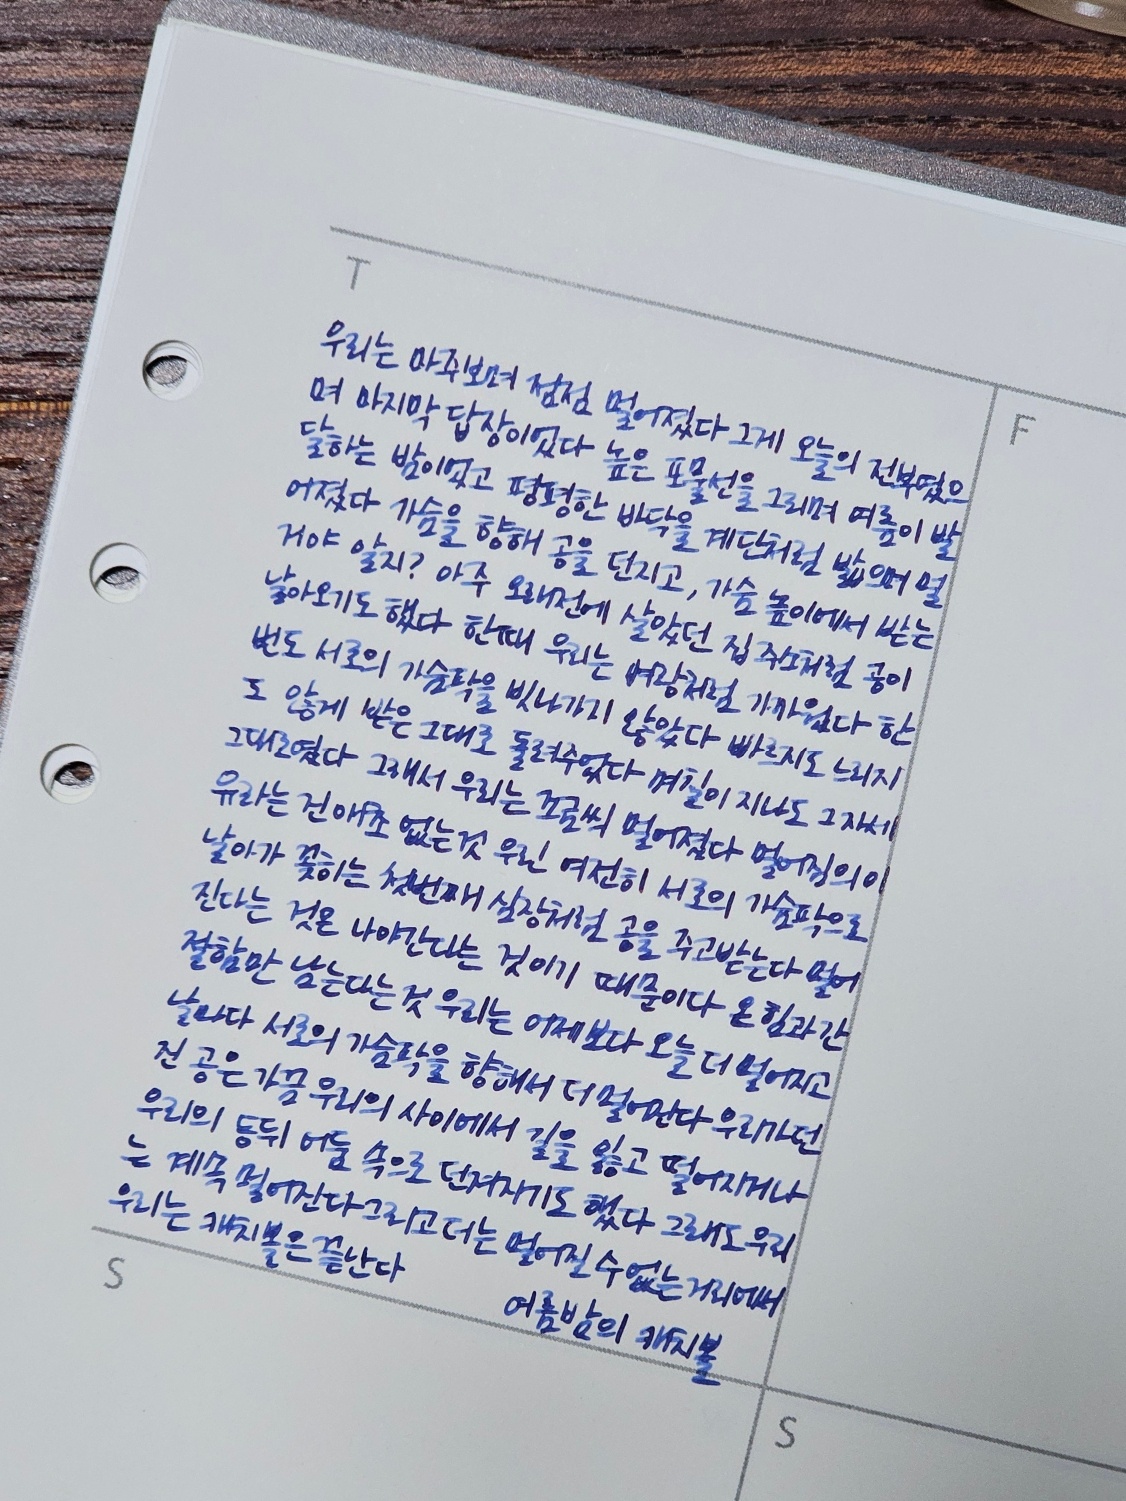 T
우리는 마주보며 점점 멀어졌다 그게 오늘의 전부였으
F
며 마지막 답장이었다 높은 포물선을 그리며 여름이 발
달하는 밤이었고 평평한 바닥을 계단처럼 밟으며 멀
어졌다 가슴을 향해 공을 던지고, 가슴 높이에서 받는
거야 알지? 아주 오래전에 살았던 집 주소처럼 공이
날아오기도 했다 한때 우리는 벼랑처럼 가까웠다 한
번도 서로의 가슴팍을 빗나가지 않았다 빠르지도 느리지
도 않게 받은 그대로 돌려주었다 며칠이 지나도 그 자세
그대로였다 그래서 우리는 조금씩 멀어졌다 멀어짐의 이
유라는 건 애초 없는 것 우린 여전히 서로의 가슴팍으로
날아가 꽂히는 첫번째 심장처럼 공을 주고받는다 멀어
진다는 것은 나아간다는 것이기 때문이다 온 힘과 간
절함만 남는다는 것 우리는 어제보다 오늘 더 멀어지고
날마다 서로의 가슴팍을 향해서 더 멀어진다 우리가 던
진 공은 가끔 우리의 사이에서 길을 잃고 떨어지거나
우리의 등뒤 어둠 속으로 던져지기도 했다 그래도 우리
는 계속 멀어진다 그리고 더는 멀어질 수 없는 거리에서
우리는 캐치볼은 끝난다
여름밤의 캐치볼
S
S